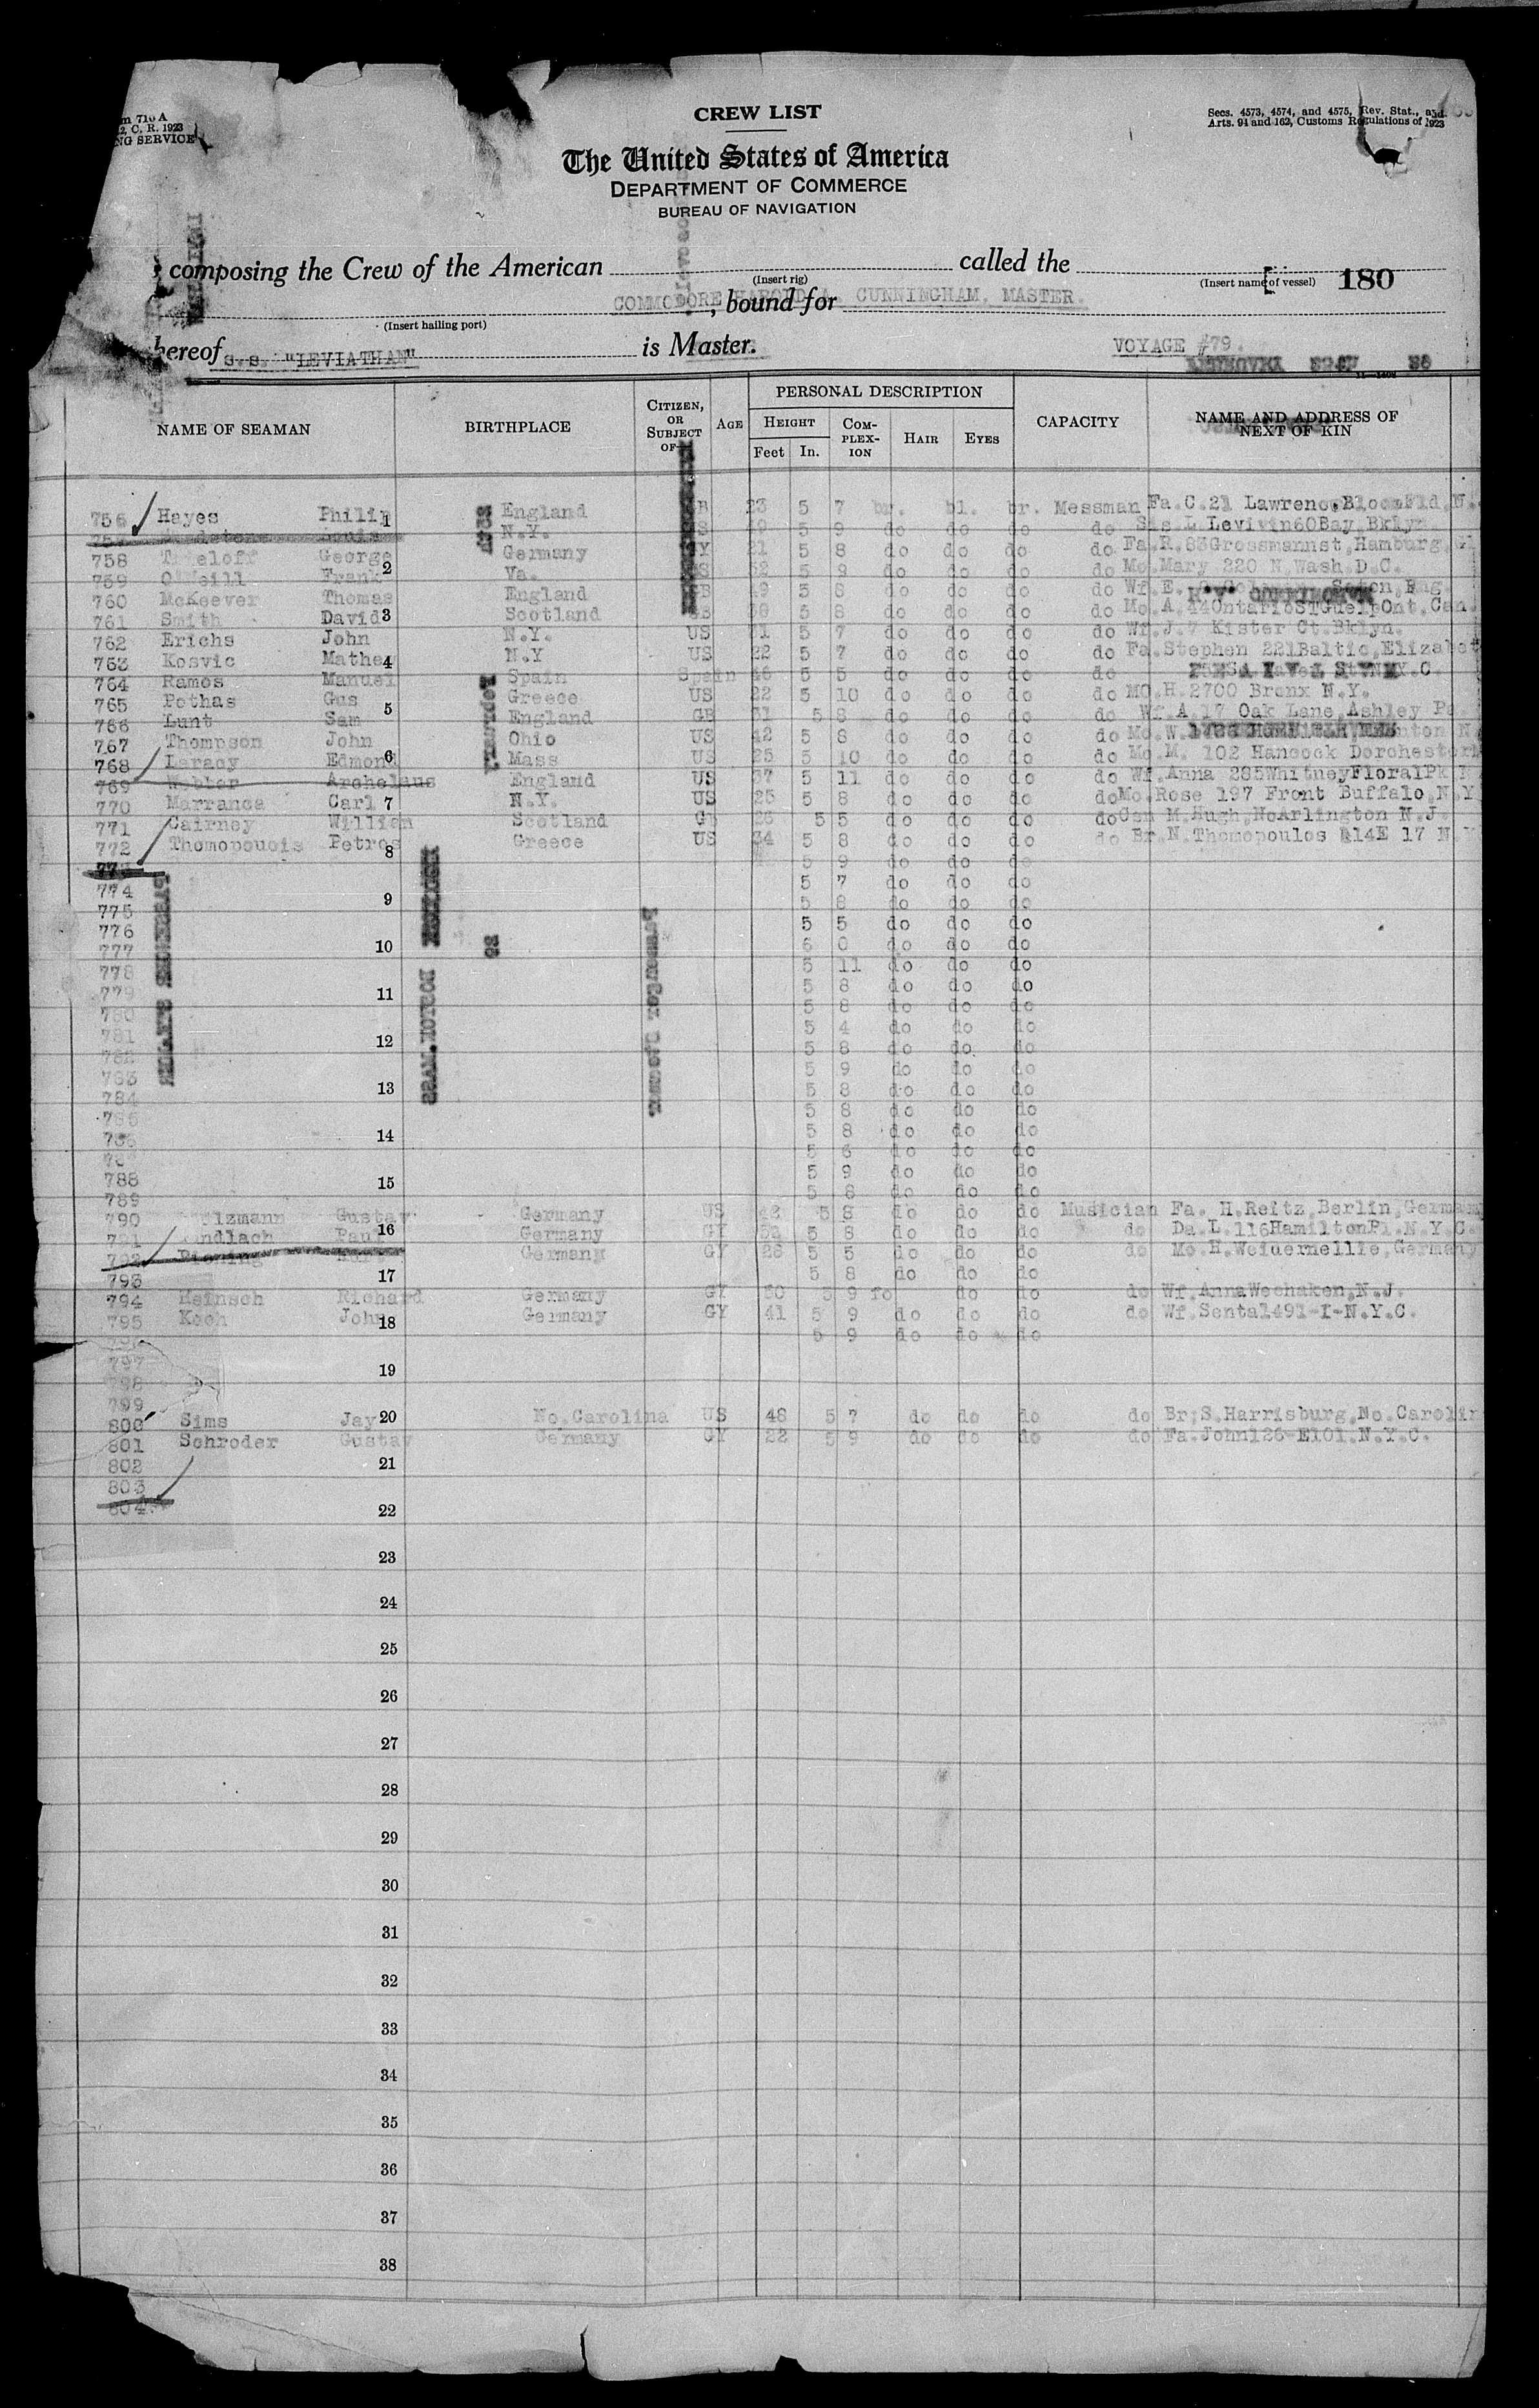 CREW LIST
710 A
C. R. 1923
NG SERVICE
Secs. 4573, 4574, and 4575, Rev. Stat., and
Arts. 91 and 162, Customs Regulations of 1923
The United States of America
DEPARTMENT OF COMMERCE
BUREAU OF NAVIGATION
composing the Crew of the American called the
(Insert rig) (Insert name of vessel) 180
COMMODORE HAROLD A. CUNNINGHAM, MASTER.
, bound for
(Insert hailing port)
hereof S.S. "LEVIATHAN" is Master. VOYAGE #79.
NAME OF SEAMAN BIRTHPLACE CITIZEN, OR SUBJECT OF— AGE PERSONAL DESCRIPTION CAPACITY NAME AND ADDRESS OF NEXT OF KIN
HEIGHT COMPLEXION HAIR EYES
Feet In.
756 Hayes Philip 1 England GB 23 5 7 br. bl. br. Messman Fa.C.21 Lawrence,Bloomfld,N.
757 Louis N.Y. US 5 9 do do do do Sis.L.Levivin60Bay Bklyn.
758 George Germany GY 21 5 8 do do do do Fa.R.83Grossmannst,Hamburg,G
759 O'Neill Frank 2 Va. US 52 5 9 do do do do Mo.Mary 220 N.Wash.D.C.
760 McKeever Thomas England GB 49 5 8 do do do do Wf.E. Eng.
761 Smith David 3 Scotland GB 5 8 do do do do Mo.A.44OntarioSTGuelpOnt.Can.
762 Erichs John N.Y. US 31 5 7 do do do do Wf.J.7 Kister Ct.Bklyn.
763 Kosvic Mathew 4 N.Y US 22 5 7 do do do do Fa.Stephen 221Baltic,Elizabet
764 Ramos Manuel Spain Spain 46 5 5 do do do do N.Y.C.
765 Pothas Gus 5 Greece US 22 5 10 do do do do MO.H.2700 Bronx N.Y.
766 Lunt Sam England GB 31 5 8 do do do do Wf.A.17 Oak Lane,Ashley Pa.
767 Thompson John Ohio US 42 5 8 do do do do Mo.W.
768 Laracy Edmond 6 Mass US 25 5 10 do do do do Mo.M. 102 Hancock Dorchester
769 Webber Archelaus England US 37 5 11 do do do do Wf.Anna 285WhitneyFloralPk N
770 Marranca Carl 7 N.Y. US 25 5 8 do do do do Mo.Rose 197 Front Buffalo,N.Y
771 Cairney William Scotland GB 26 5 5 do do do do M.Hugh,NoArlington N.J.
772 Thomopouois Petros 8 Greece US 34 5 8 do do do do Br.N.Thomopoulos 414E 17 N.Y
773 5 9 do do do
774 5 7 do do do
775 9 5 8 do do do
776 5 5 do do do
777 10 6 0 do do do
778 5 11 do do do
779 11 5 8 do do do
780 5 8 do do do
781 12 5 4 do do do
782 5 8 do do do
783 5 9 do do do
784 13 5 8 do do do
785 5 8 do do do
786 14 5 8 do do do
787 5 6 do do do
788 5 9 do do do
789 15 5 8 do do do
790 Gustav Germany US 42 5 8 do do do Musician Fa. H.Reitz,Berlin,Germany
791 Paul 16 Germany GY 5 8 do do do do Da.L.116HamiltonPl.N.Y.C.
792 Germany GY 26 5 5 do do do do Mo.H.Weiuernellie,Germany
793 17 5 8 do do do
794 Heinsch Richard Germany GY 50 5 9 fo do do do Wf.AnnaWeehaken,N.J.
795 Koch John 18 Germany GY 41 5 9 do do do do Wf.Senta1491-1-N.Y.C.
796 5 9 do do do
797 19
798
799
800 Sims Jay 20 No.Carolina US 48 5 7 do do do do Br;S.Harrisburg,No.Carolin
801 Schroder Gustav Germany GY 22 5 9 do do do do Fa.John126-E101.N.Y.C.
802 21
803
804 22
23
24
25
26
27
28
29
30
31
32
33
34
35
36
37
38